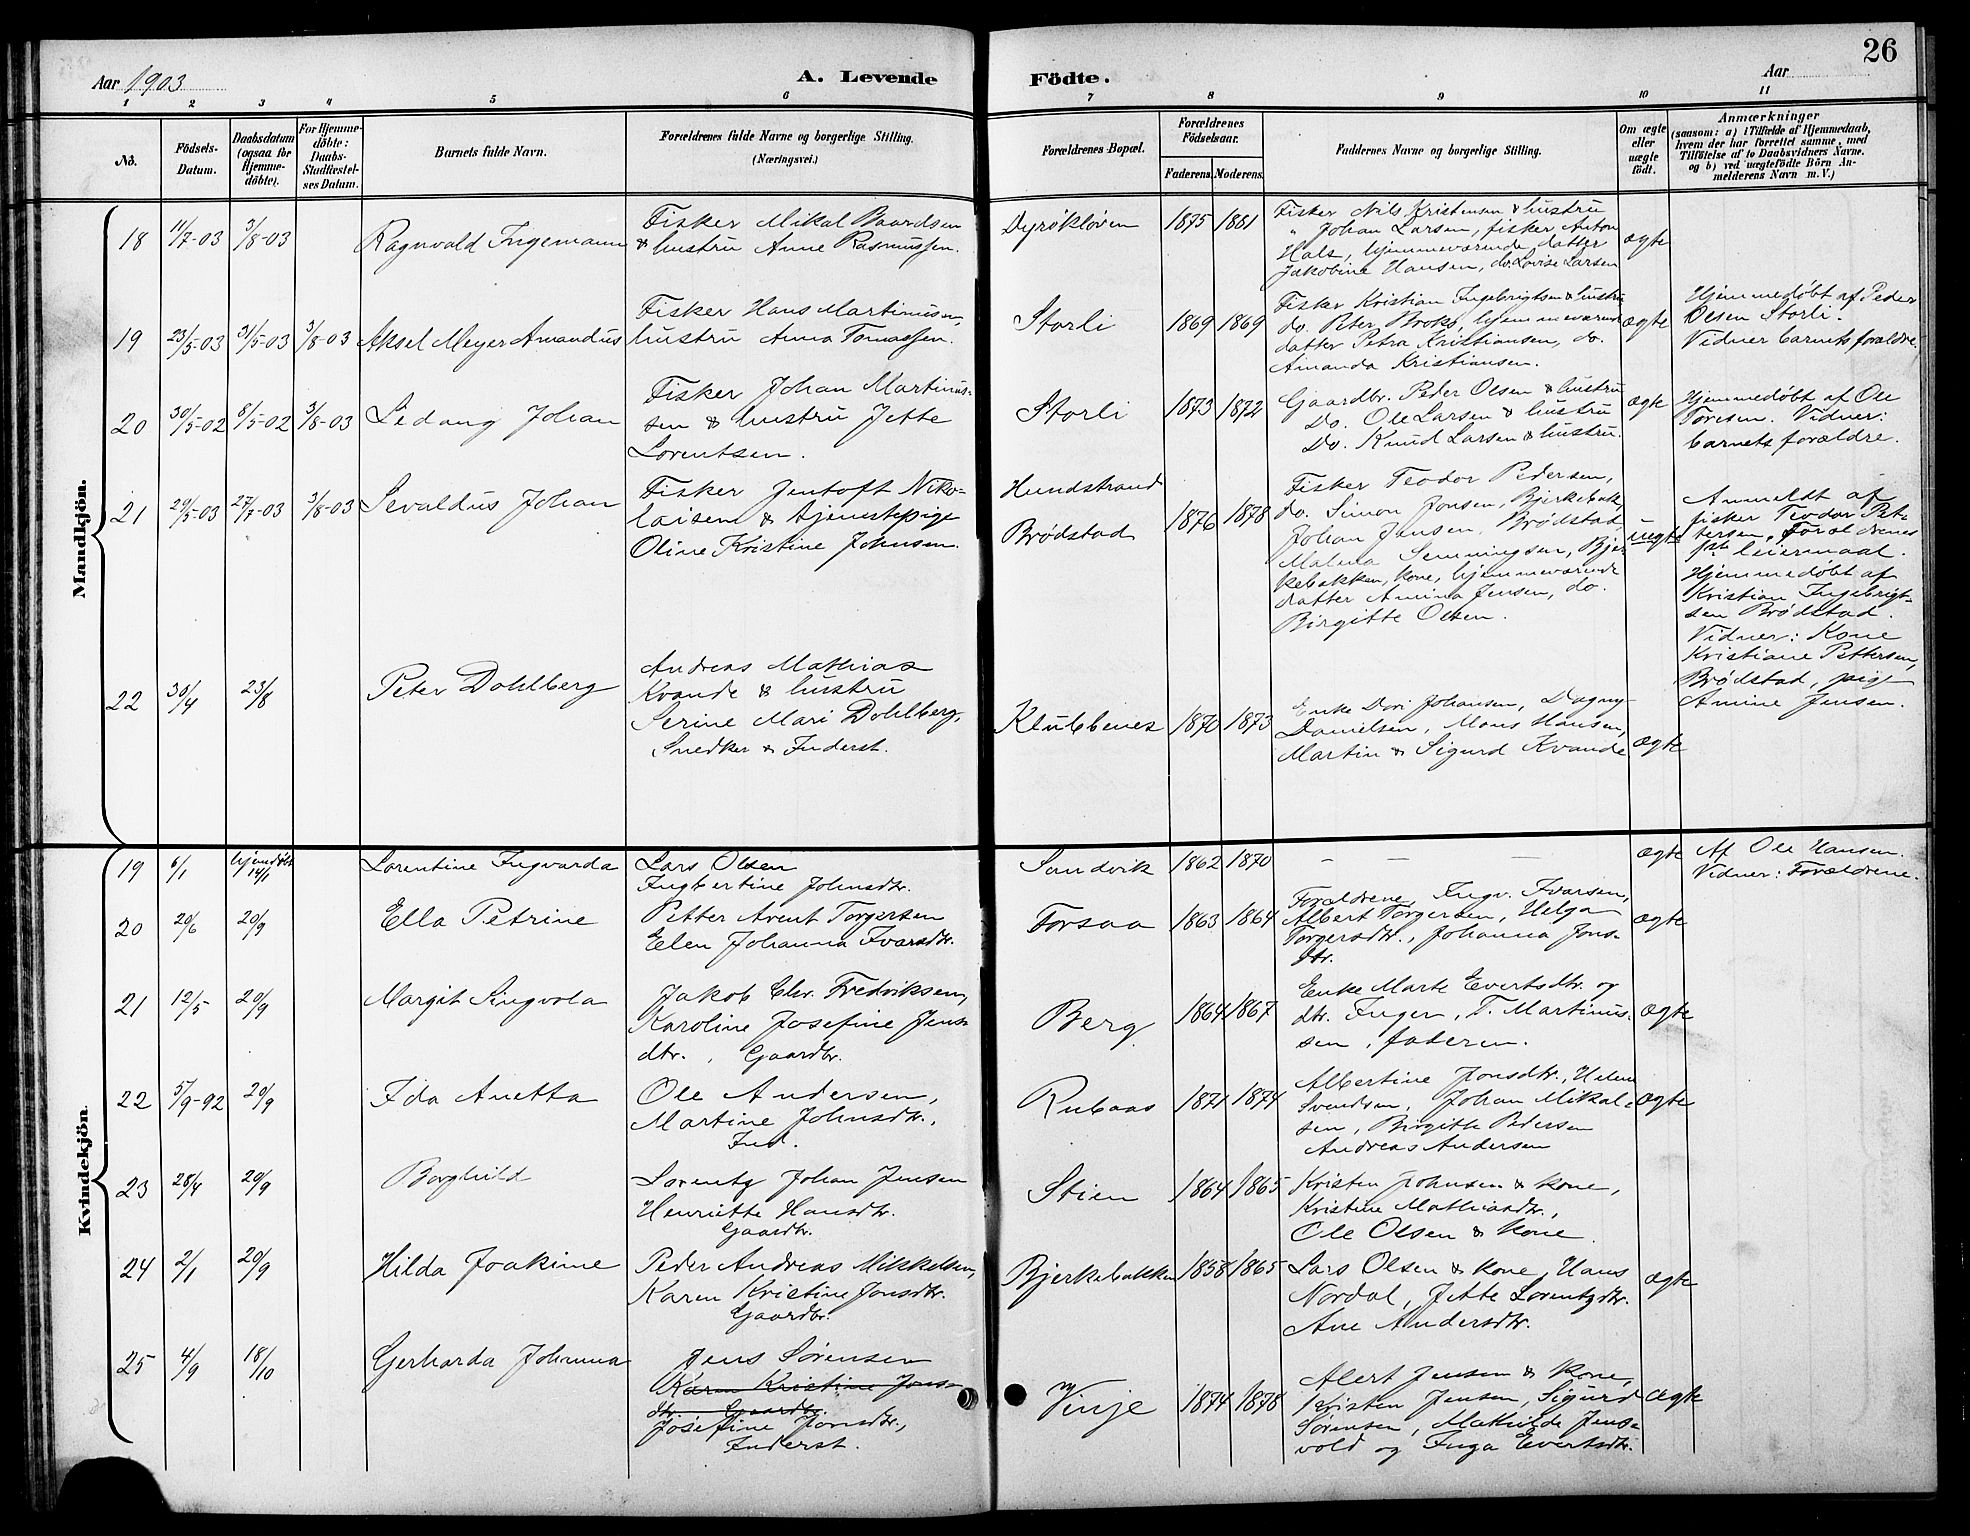 26
Aar 1903
A. Levende Födte.
Aar
1 2 3 4 5 6 7 8 9 10 11
No.
Födsels-Datum.
Daabsdatum (ogsaa for Hjemme-döbte).
For Hjemme-döbte: Daabs-Stadfæstel-ses Datum.
Barnets fulde Navn.
Forældrenes fulde Navne og borgerlige Stilling.
(Næringsvei.)
Forældrenes Bopæl.
Forældrenes Födselsaar.
Faderens. Moderens.
Faddernes Navne og borgerlige Stilling.
Om ægte eller uægte födt.
Anmærkninger
(saasom: a) i Tilfælde af Hjemmedaab,
hvem der har forrettet samme, med
Tilföielse af to Daabsvidners Navne.
og b) ved uægtefödte Börn An-
melderens Navn m. V.)
Mandkjön.
18 11/7-03 3/8-03 Ragnvald Ingemann
Fisker Mikal Baardsen
& hustru Anne Rasmussen.
Dyrøkløven 1875 1881
Fisker Nils Kristensen & hustru
" Johan Larsen, fisker Anton
Hals, hjemmeværende datter
Jakobine Hansen, do. Lovise Larsen
ægte
19 23/5-03 31/5-03 3/8-03 Aksel Meyer Amandus
Fisker Hans Martinusen,
hustru Anna Tomassen.
Storli 1869 1869
Fisker Kristian Ingebrigtsen & hustru
do. Peter Broks, hjemmeværende
datter Petra Kristiansen, do.
Amanda Kristiansen.
ægte
Hjemmedøbt af Peder
Olsen Storli.
Vidner barnets forældre.
20 30/5-02 8/5-02 3/8-03 Ledang Johan
Fisker Johan Martinus-
sen & hustru Jette
Lorentsen.
Storli 1873 1872
Gaardbr. Peder Olsen & hustru
Do. Ole Larsen & hustru
Do. Knud Larsen & hustru.
ægte
Hjemmedøbt af Ole
Toresen. Vidner:
barnets forældre.
21 29/5-03 27/7-03 3/8-03 Sevaldus Johan
Fisker Jentoft Niko-
laisen & tjenestepige
Oline Kristine Johnsen.
Hundstrand
Brødstad 1876 1878
Fisker Teodor Pedersen,
do. Simon Jonsen, Bjerkebak,
Johan Jansen, Brødstad,
Malena Semmingsen, Bjer-
kebakken, kone, hjemmeværende
datter Amina Jensen, do.
Birgitte Olsen.
uægte
Anmeldt af
fisker Teodor Pet-
tersen, Forældrenes
1ste leiermaal.
Hjemmedøbt af
Kristian Ingebrigt-
sen Brødstad.
Vidner: Kone
Kristiane Pettersen,
Brødstad, pige
Amine Jensen.
22 30/4 23/8 Peter Dohlberg
Andreas Mathias
Kvande & hustru
Serine Mari Dohlberg,
Snedker & Inderst.
Klubbenes 1870 1873
Enke Dori Johansen, Dagny
Danielsen, Mons Hansen,
Martin & Sigurd Kvande
ægte
Kvindekjön.
19 6/1 hjemdøbt 14/1 Lorentine Ingvarda
Lars Olsen
Ingbertine Johnsdtr.
Sandvik 1862 1870 – – – ægte
Af Ole Hansen.
Vidner: Forældrene.
20 20/6 20/9 Ella Petrine
Petter Arent Torgersen
Elen Johanna Ivarsdtr.
Forsaa 1863 1864
Forældrene, Ingv. Ivarsen,
Albert Torgersen, Helga
Torgersdtr., Johanna Jons-
dtr.
ægte
21 12/5 20/9 Margit Singvola
Jakob Chr. Fredriksen,
Karoline Josefine Jens-
dtr., Gaardbr.
Berg 1864 1867
Enke Marte Evertsdtr. og
dtr. Inger, T. Martinus-
sen, faderen.
ægte
22 5/9-92 20/9 Ida Anetta
Ole Andersen,
Martine Johnsdtr.,
Ind.
Rubaas 1871 1874
Albertine Jonsdtr., Helene
Svendsen, Johan Mikal-
sen, Birgitte Pedersen
Andreas Andersen
ægte
23 28/4 20/9 Borghild
Lorentz Johan Jensen
Henriette Hansdtr.
Gaardbr.
Stien 1864 1865
Kristen Johnsen & kone,
Kristine Mathiasdtr.,
Ole Olsen & kone.
24 2/1 20/9 Hilda Joakime
Peder Andreas Mikkelsen,
Karen Kristine Jonsdtr.
Gaardbr.
Bjerkebakken 1858 1865
Lars Olsen & kone, Hans
Nordal, Jette Lorentzdtr.
Ane Andersdtr.
ægte
25 4/9 18/10 Gerharda Johanna
Jens Sørensen
Karen Kristine Jons-
dtr. Gaardbr.
Josefine Jonsdtr.,
Inderst.
Vinje 1874 1878
Alert Jensen & kone,
Kristen Jensen, Sigurd
Sørensen, Mathilde Jens-
vold og Inga Evertsdtr.
ægte